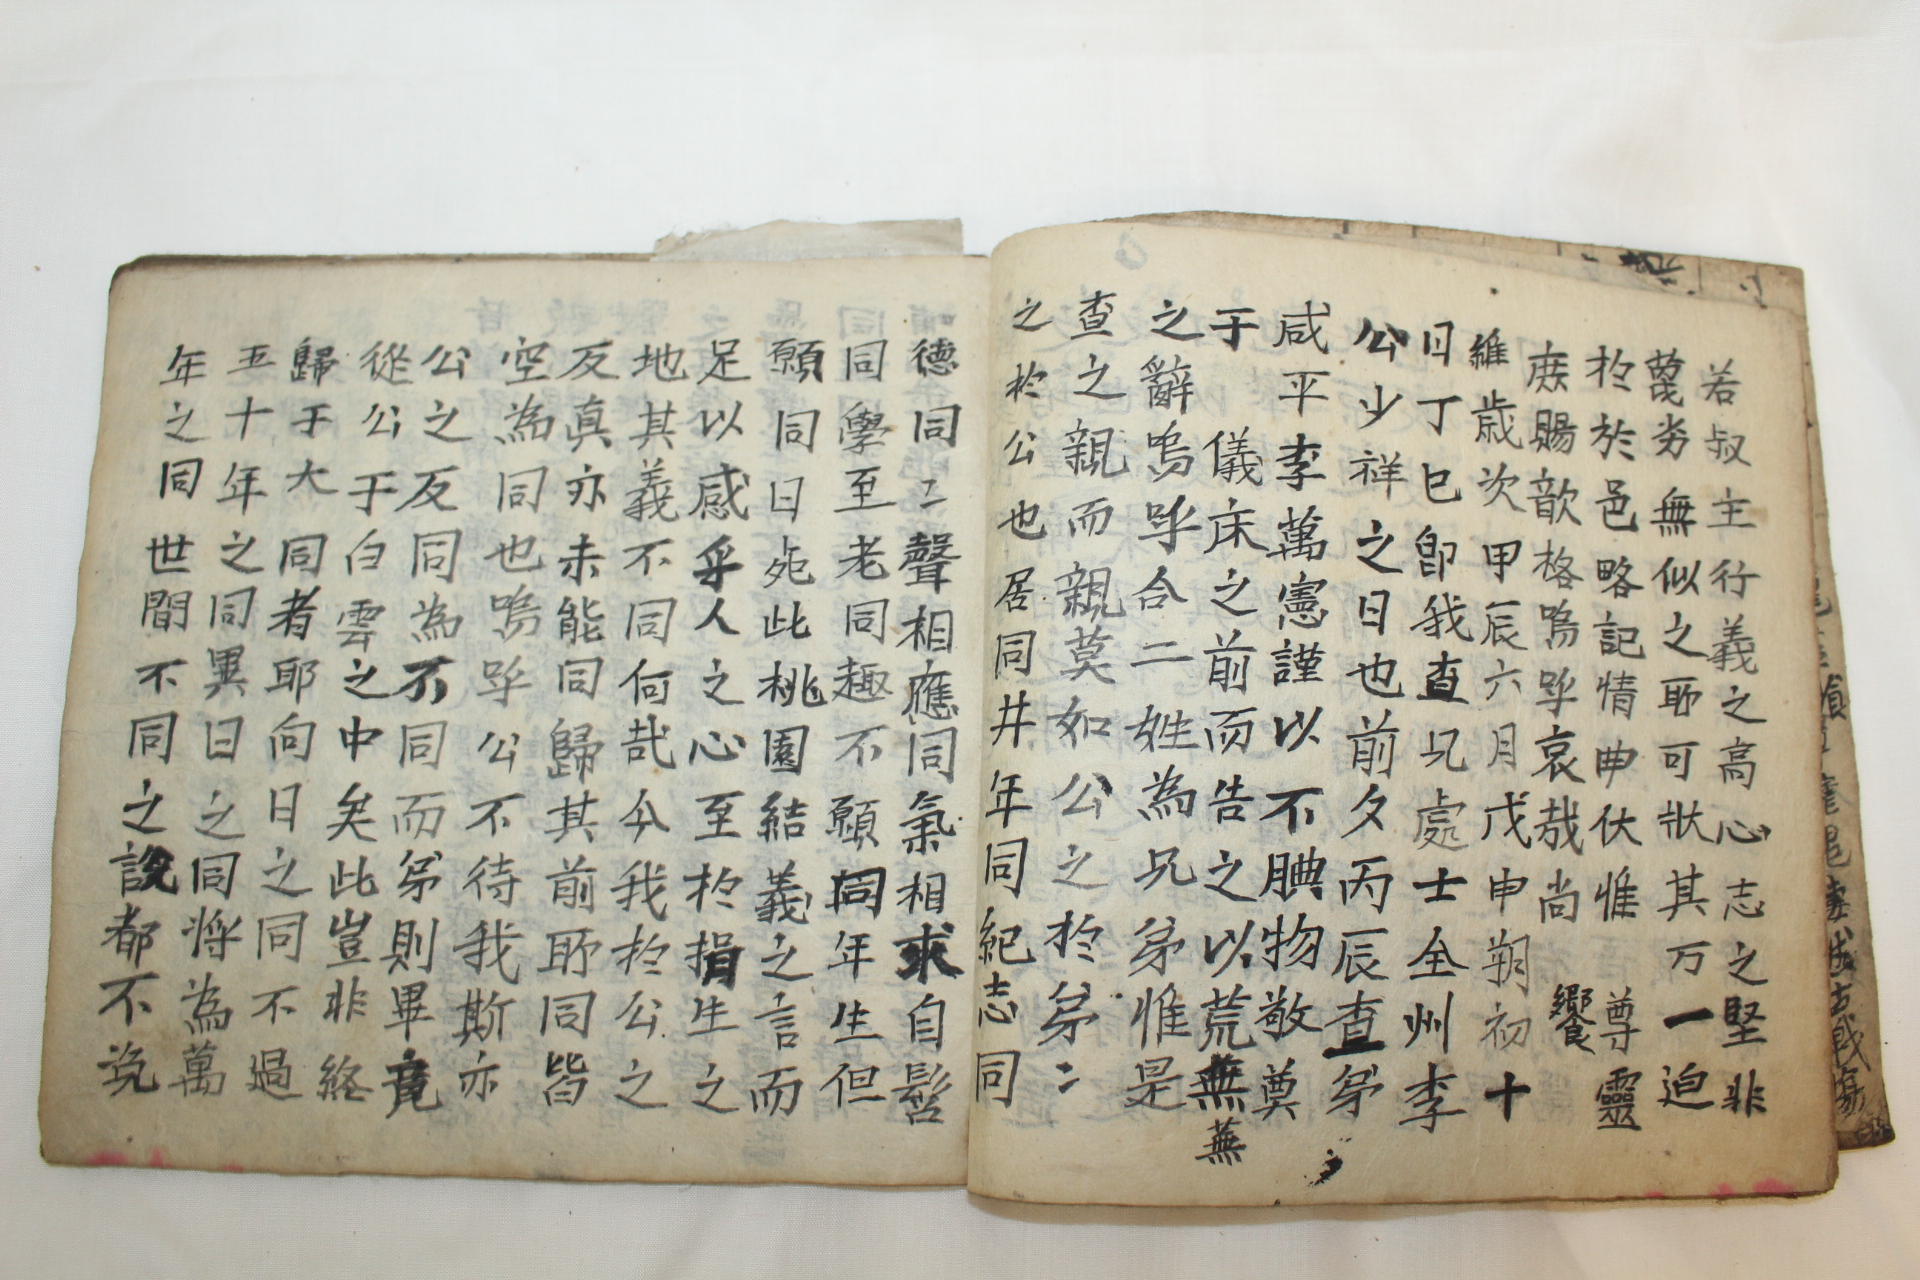 若叔主行義之高心志之堅非
蔑劣無似之耶可狀其万一迫
於於邑略記情曲伏惟 尊靈
庶賜歆格嗚呼哀哉尚 饗
維歲次甲辰六月戊申朔初十
日丁巳卽我査兄處士全州李
公少祥之日也前夕丙辰査弟
咸平李萬憲謹以不腆物敬奠
于 儀床之前而告之以荒蕪蕪
之辭嗚呼合二姓為兄弟惟是
査之親而親莫如公之於弟〻
之於公也居同井年同紀志同
德同〻聲相應同氣相求自髫
同學至老同趣不願同年生但
願同日死此桃園結義之言而
足以感乎人之心至於捐生之
地其義不同何哉今我於公之
反真亦未能同歸其前耶同皆
空為同也嗚呼公不待我斯亦
公之反同為不同而弟則畢竟
從公于白雲之中矣此豈非終
歸于大同者耶向日之同不過
五十年之同異日之同將為萬
年之同世間不同之說都不說